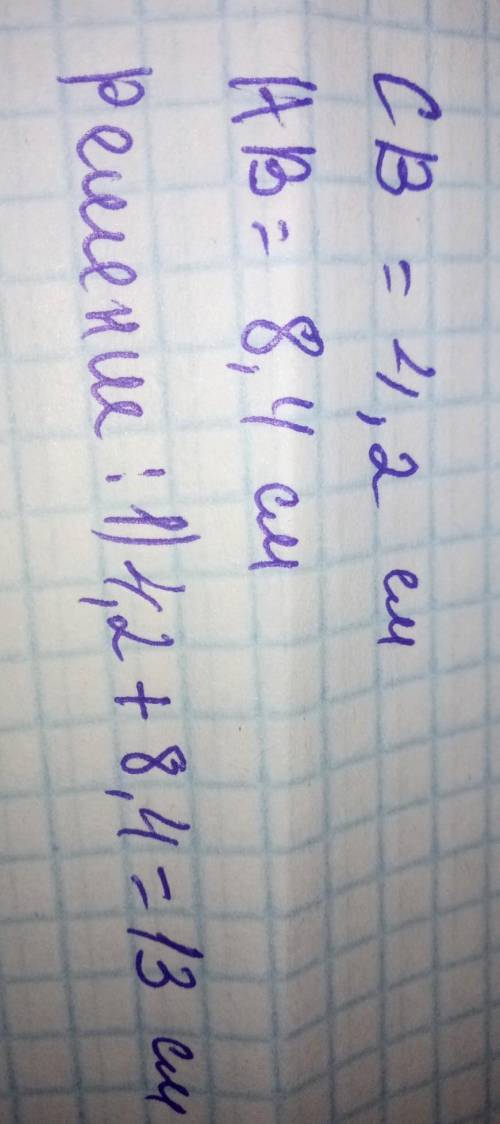 CB = 4,2 см
AB = 8,4 см
решение: 1) 4,2 + 8,4 = 13 см